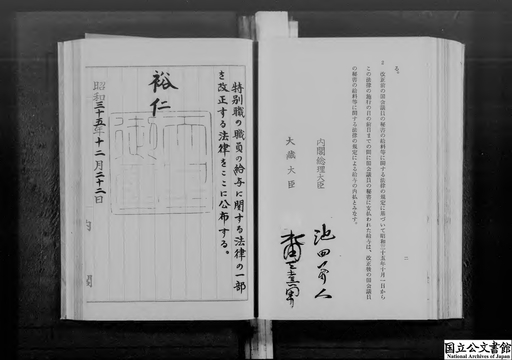 る。
2 改正前の国会議員の秘書の給料等に関する法律の規定に基づいて昭和三十五年十月一日から
この法律の施行の日の前日までの間に国会議員の秘書に支払われた給与は、改正後の国会議員
の秘書の給料等に関する法律の規定による給与の内払とみなす。
内閣総理大臣
池田勇人
大蔵大臣
二
特別職の職員の給与に関する法律の一部
を改正する法律をここに公布する。
裕仁
昭和三十五年十二月二十二日
内閣
国立公文書館
National Archives of Japan